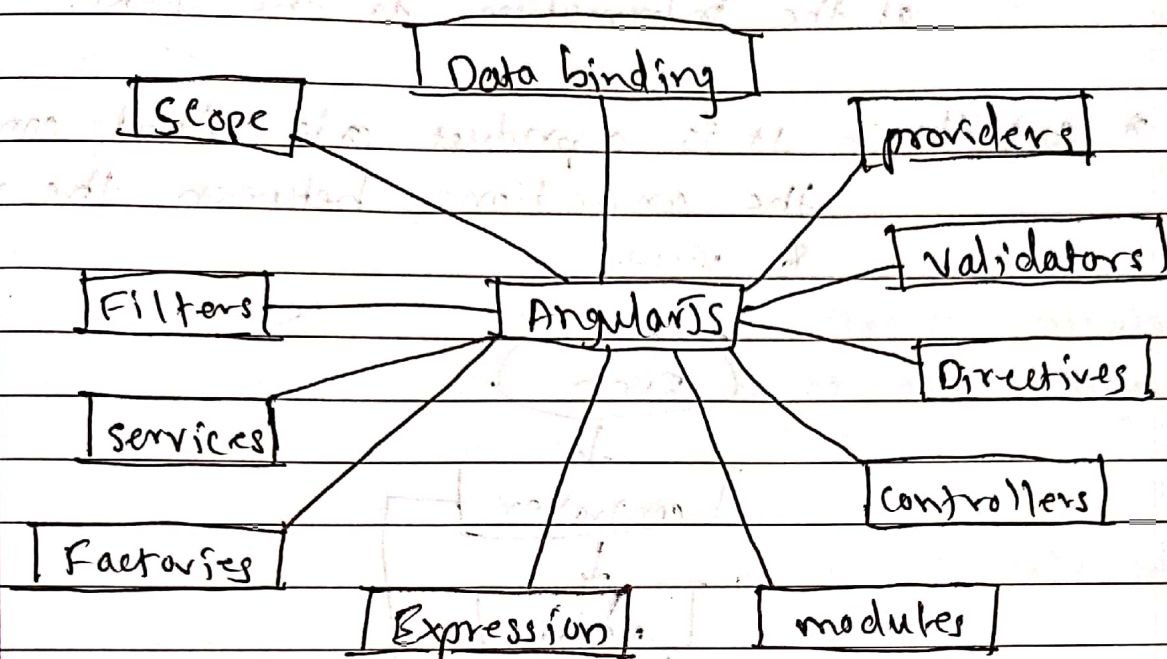 Data binding
Scope
providers
Validators
Filters
AngularJS
Directives
services
controllers
Factories
Expression
modules